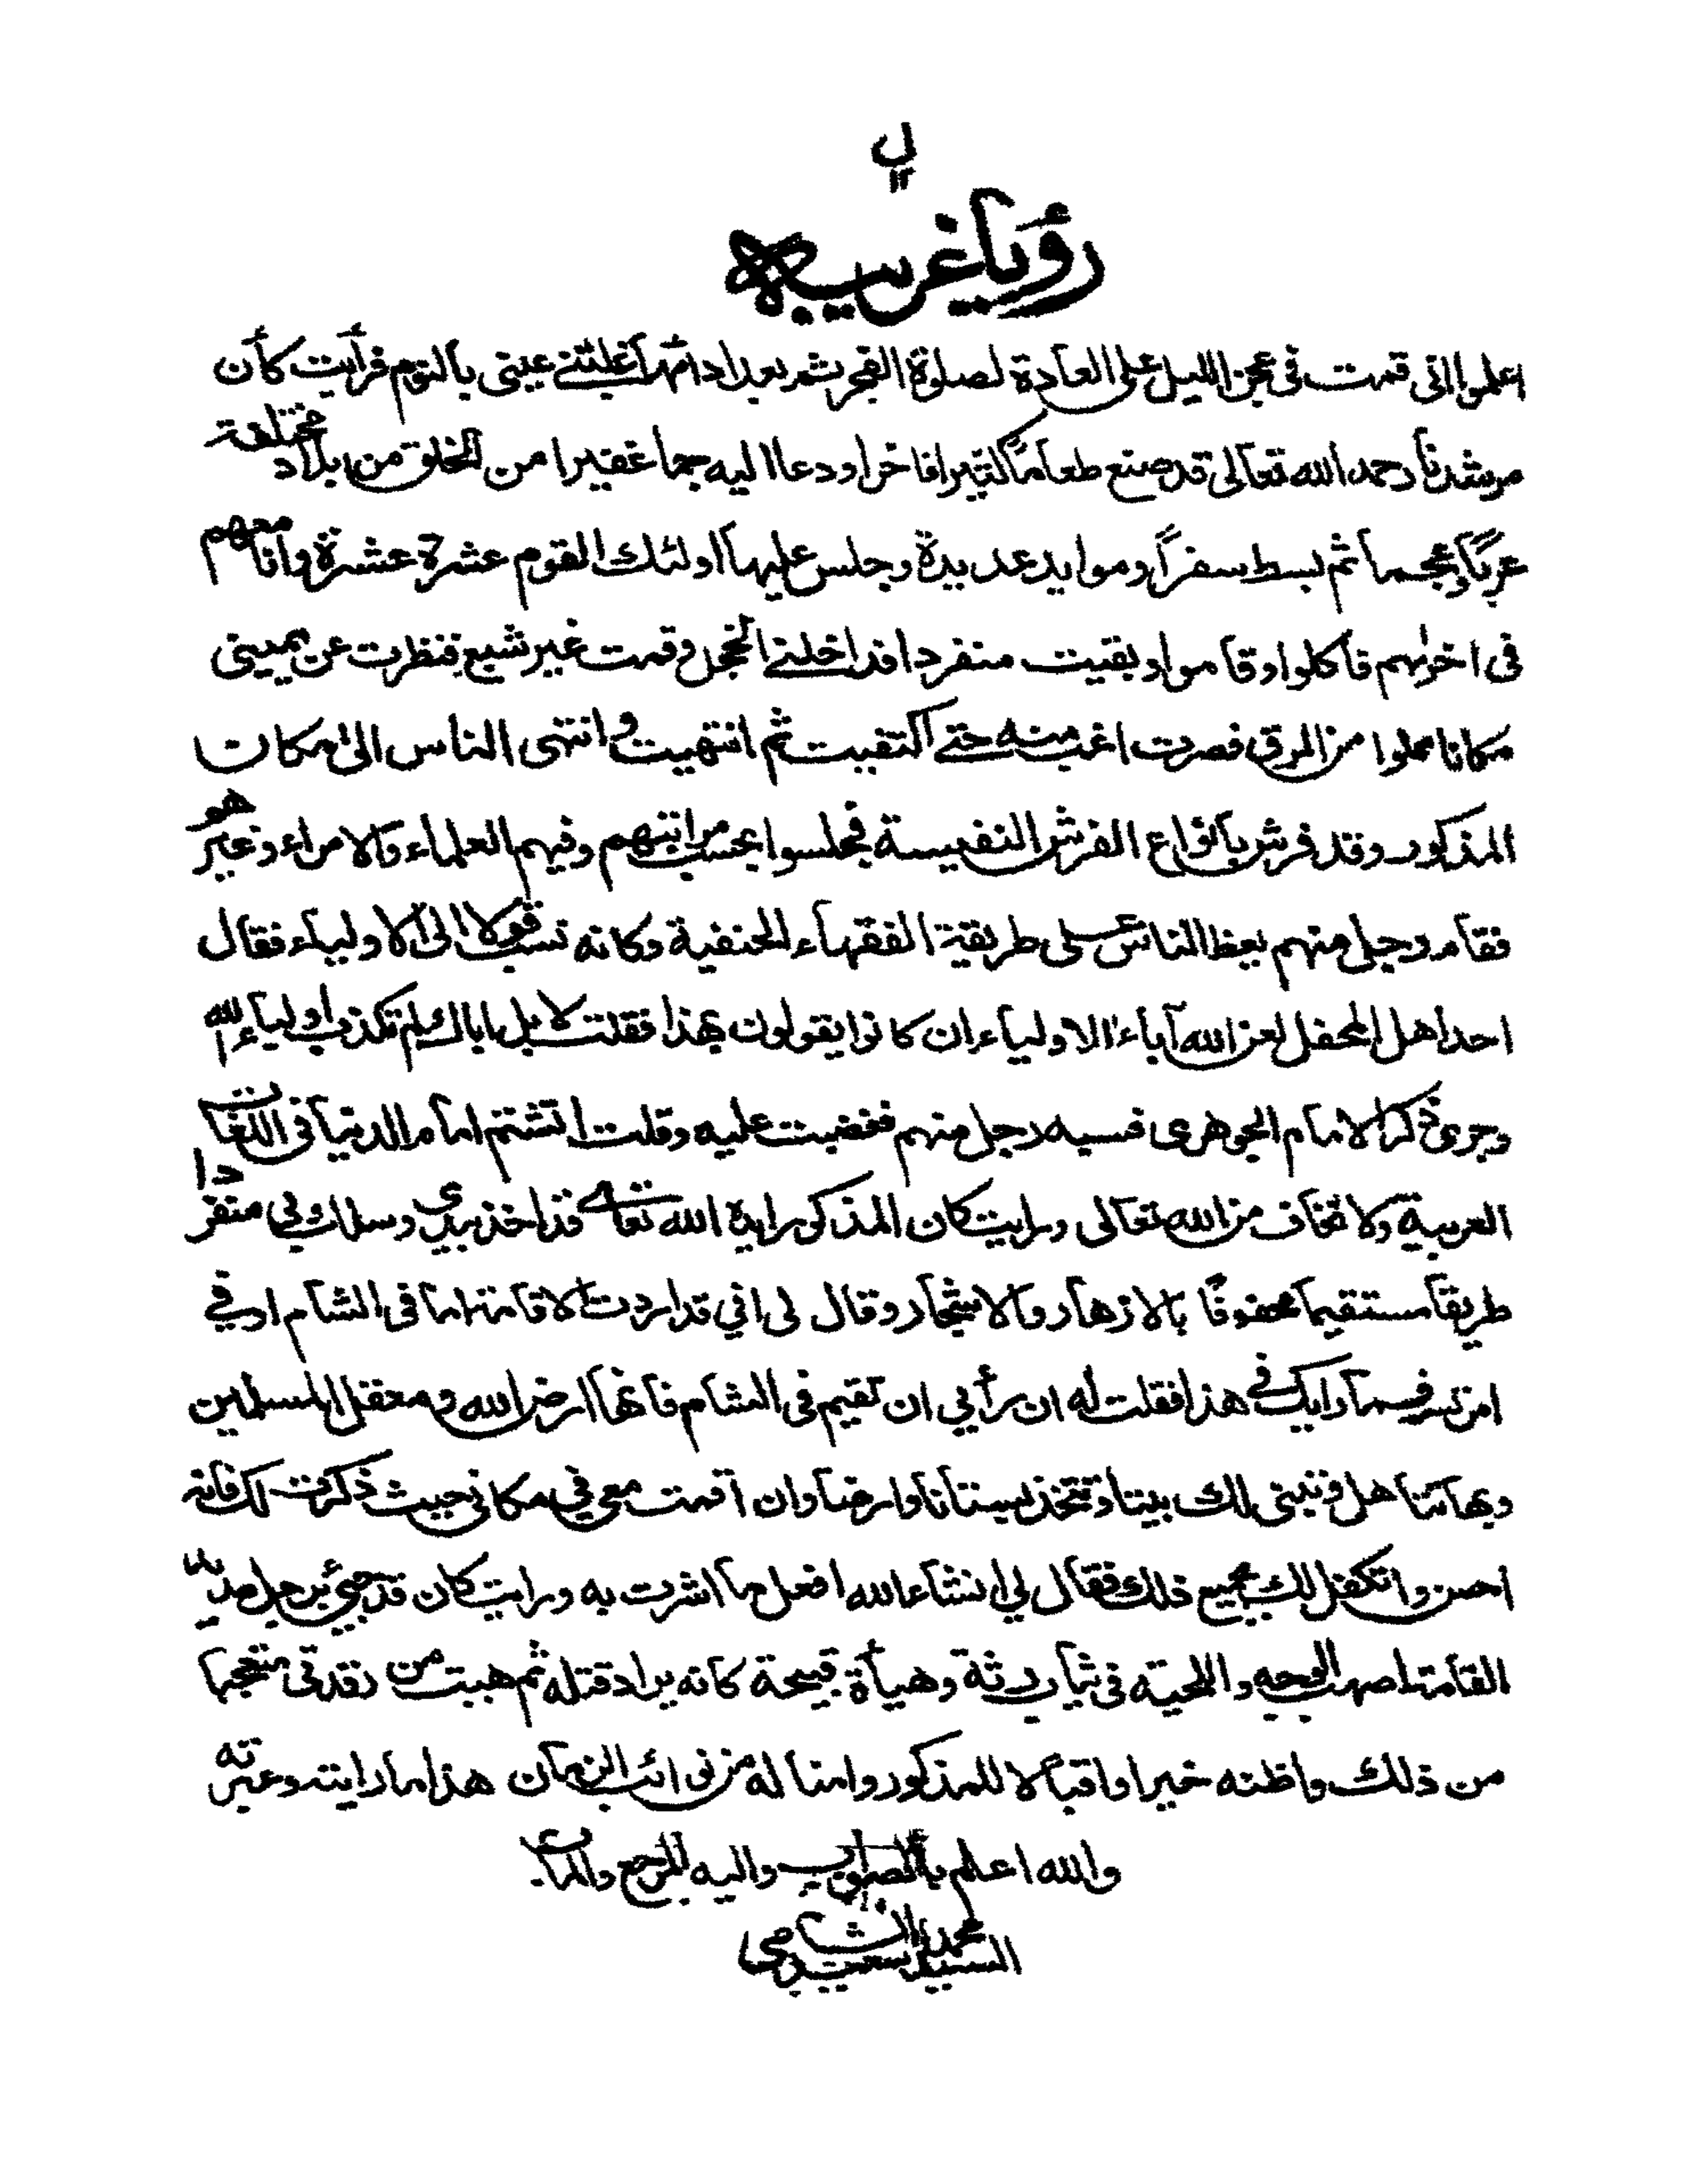 ل
رؤيا غريبه
اعلموا انى قمت فى عجز الليل على العادة لصلوة الفجر ثم بعد ادائها غلبتنے عينى بالنوم فرأيت كأن
مرشدنا رحمه الله تعالى قد صنع طعاماً كثيرا فاخرا ودعا اليه جما غفيرا من الخلق من بلاد مختلفة
عرباً وعجما ثم بسط سفراً وموايد عديدة وجلس عليها اولئك القوم عشرة عشرة وانا معهم
فى اخرٰهم فاكلوا وقاموا وبقيت منفردا فداخلنے الخجل وقمت غير شبع فنظرت عن يمينى
مكانا مملوا من المرق فصرت اغب منه حتے اكتفيت ثم انتهيت وانتهى الناس الى مكان
المذكور وقد فرش بانواع الفرش النفيسة فجلسوا بحسب مراتبهم وفيهم العلماء والامراء وغيرهو
فقام رجل منهم يعظ الناس على طريقة الفقهاء الحنفية وكانه نسب قولا الى الاولياء فقال
احد اهل المحفل لعن الله آباء الاولياء ان كانوا يقولون بهذا فقلت لا بل اباك لم تكذب اولياء الله
وجرى ذكر الامام الجوهرى فسبه رجل منهم فغضبت عليه وقلت اتشتم امام الدنيا فى اللغات
العربية ولا تخاف من الله تعالى ورايت كان المذكور ايده الله تعالے قد اخذ بيدي وسلك بي منفردا
طريقاً مستقيما محفوفًا بالازهار والاشجار وقال لى اني قد اردت الاقامة اما فى الشام او في
امرتسر فما رايك فے هذا فقلت له ان رأيي ان تقيم فى الشام فانها ارض الله ومعقل المسلمين
وبها نتاهل ونبنى لك بيتا ونتخذ بستانا وارضا وان اقمت معي في مكاني حيث ذكرت لك فانه
احسن واتكفل لك بجميع ذلك فقال لي انشاء الله افعل ما اشرت به ورايت كان قد جيئ برجل مديد
القامة اصهب الوجه واللحية فى ثياب رثة وهيأة قبيحة كانه يراد قتله ثم هببت من رقدتى متعجبا
من ذلك واظنه خيرا واقبالا للمذكور وامنا له من نوائب الزمان هذا ما رايته وعبرته
والله اعلم بالصواب واليه المرجع والمآب
السيد محمد سعيد الشامى